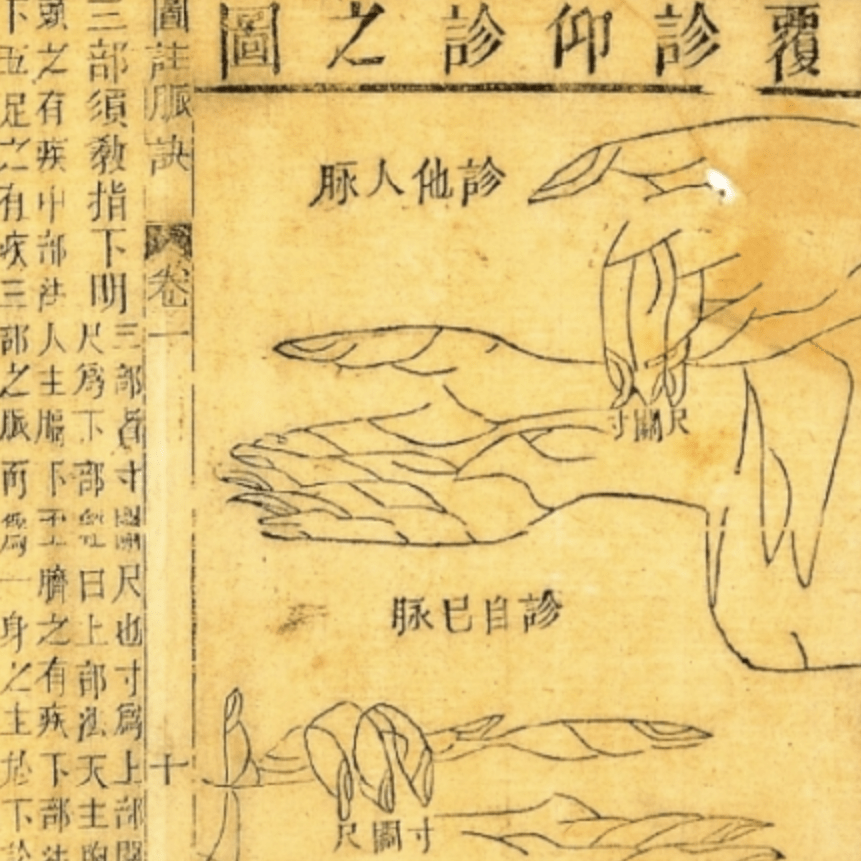 覆診仰診之圖
診他人脉
尺關寸
診自巳脉
寸關尺
圖註脉訣 卷一 十
三部須教指下明
三部者寸關尺也寸爲上部關
尺爲下部經曰上部法天主胸
頭之有疾中部法人主膈下至臍之有疾下部法
下至足之有疾三部之脈而爲一身之主於下